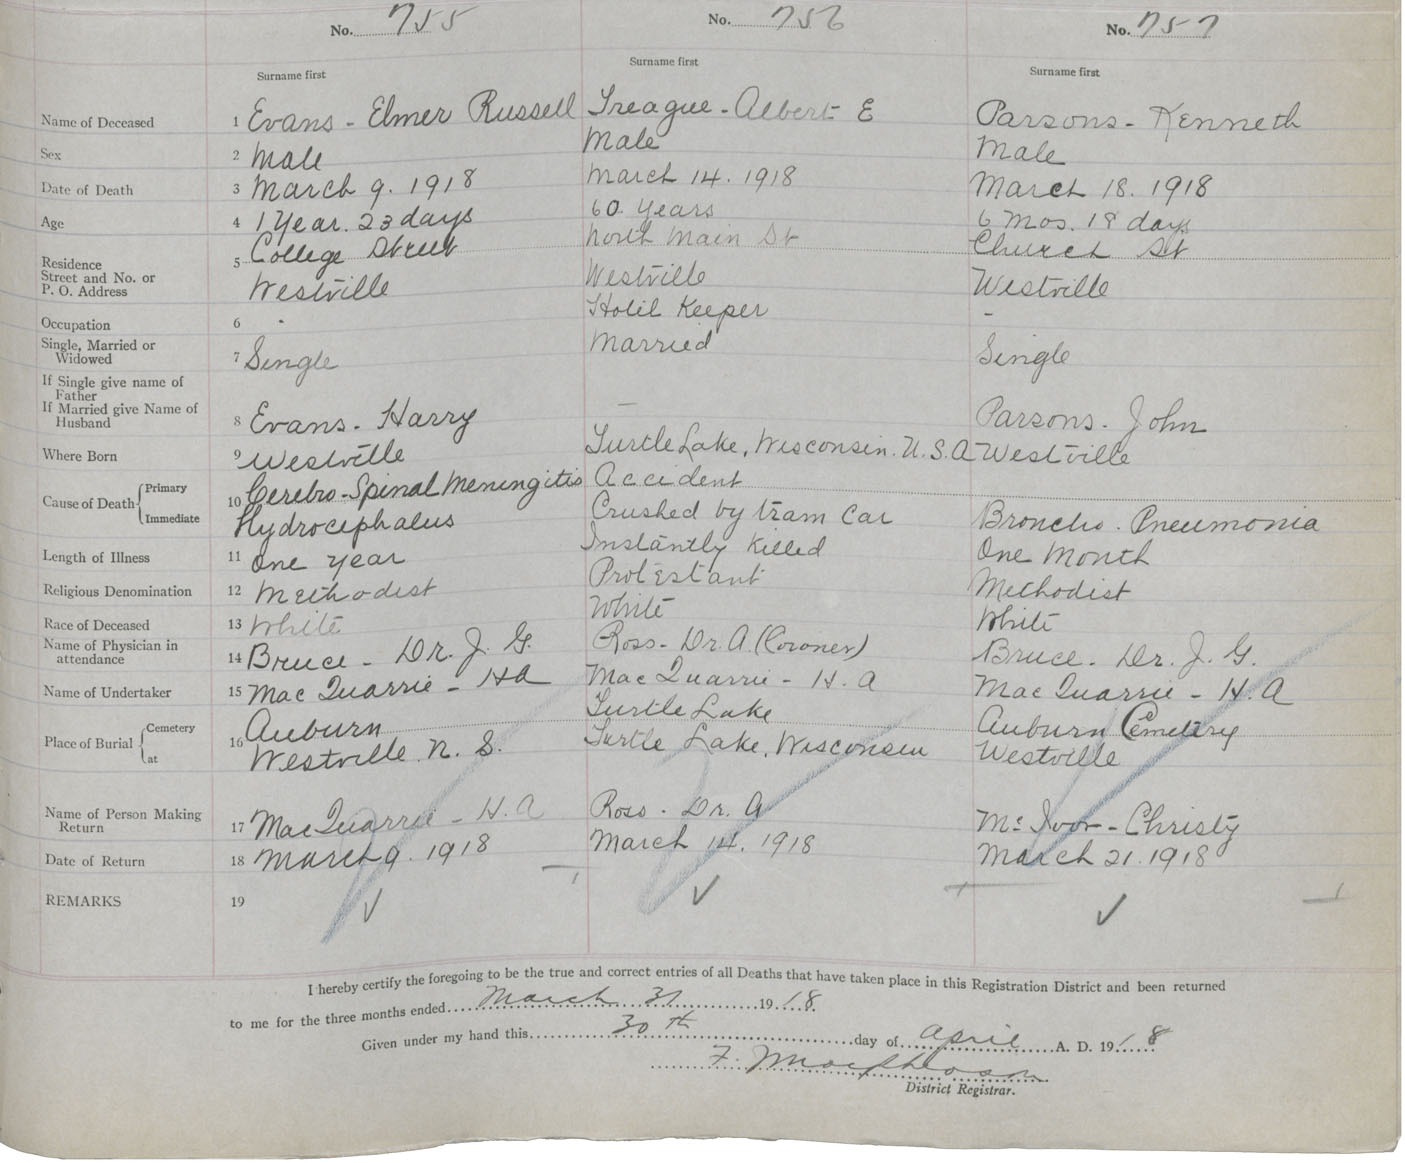 No. 755 No. 756 No. 757
Surname first Surname first Surname first
Name of Deceased 1 Evans - Elmer Russell Treague - Albert E Parsons - Kenneth
Sex 2 Male Male Male
Date of Death 3 March 9. 1918 March 14. 1918 March 18. 1918
Age 4 1 Year. 23 days 60 Years 6 Mos. 18 days
Residence
Street and No. or
P. O. Address
5 College Street North Main St Church St
Westville Westville Westville
Occupation 6 - Hotil Keeper -
Single, Married or
Widowed 7 Single Married Single
If Single give name of
Father
If Married give Name of
Husband 8 Evans - Harry — Parsons - John
Where Born 9 Westville Turtle Lake, Wisconsin. U.S.A Westville
Cause of Death Primary 10 Cerebro-Spinal Meningitis Accident
Immediate Hydrocephalus Crushed by tram car Broncho. Pneumonia
Length of Illness 11 One year Instantly Killed One Month
Religious Denomination 12 Methodist Protestant Methodist
Race of Deceased 13 White White White
Name of Physician in
attendance 14 Bruce - Dr. J. G. Ross - Dr. A. (Coroner) Bruce - Dr. J. G.
Name of Undertaker 15 MacQuarrie - H A MacQuarrie - H. A MacQuarrie - H. A
Place of Burial Cemetery 16 Auburn Turtle Lake Auburn Cemetery
at Westville N. S. Turtle Lake, Wisconsin Westville
Name of Person Making
Return 17 MacQuarrie - H. A Ross - Dr. A McIvor - Christy
Date of Return 18 March 9. 1918 March 14. 1918 March 21. 1918
REMARKS 19 ✓ ✓ ✓
I hereby certify the foregoing to be the true and correct entries of all Deaths that have taken place in this Registration District and been returned
to me for the three months ended March 31 1918.
Given under my hand this 30th day of April A. D. 1918
F. Macpherson
District Registrar.